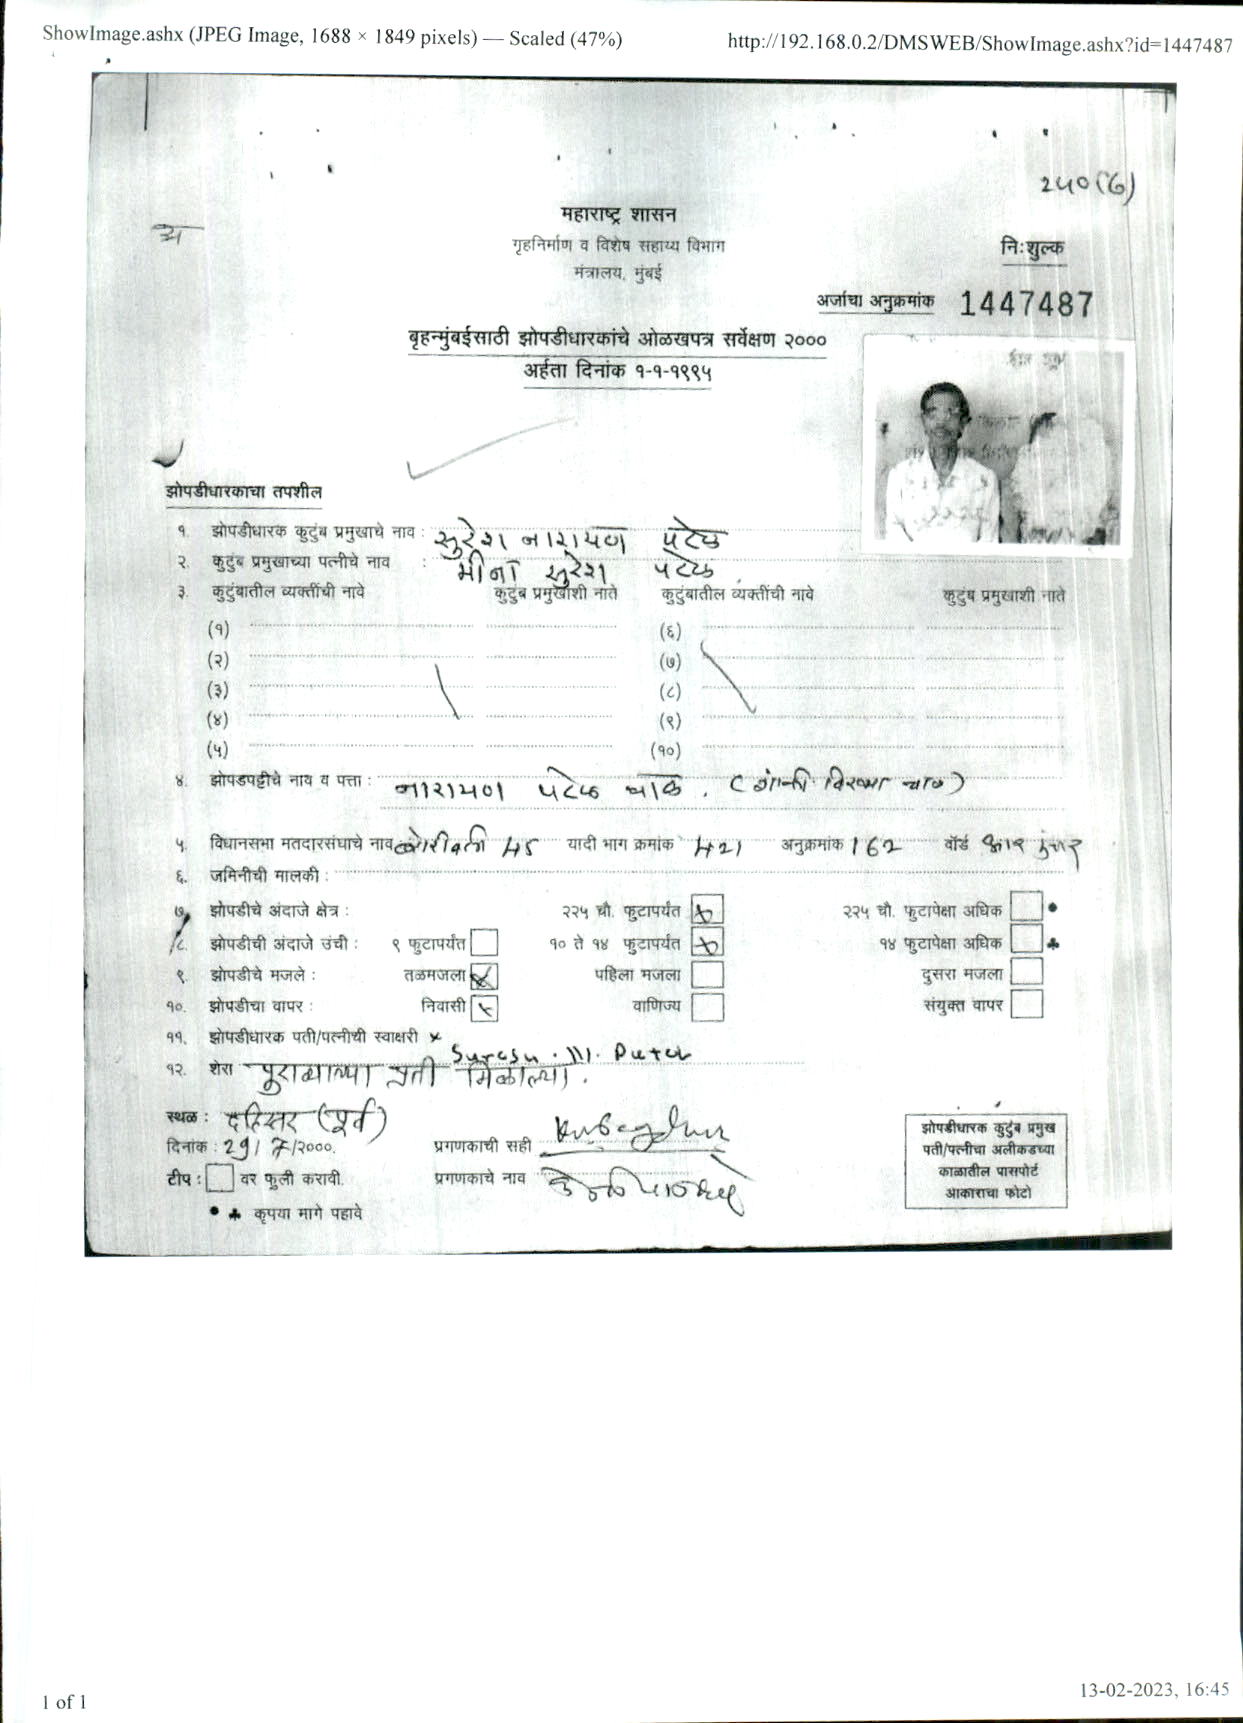 ShowImage.ashx (JPEG Image, 1688 × 1849 pixels) — Scaled (47%)
http://192.168.0.2/DMSWEB/ShowImage.ashx?id=1447487
२५०(6)
महाराष्ट्र शासन
गृहनिर्माण व विशेष सहाय्य विभाग
मंत्रालय, मुंबई
निःशुल्क
अर्जाचा अनुक्रमांक 1447487
बृहन्मुंबईसाठी झोपडीधारकांचे ओळखपत्र सर्वेक्षण २०००
अर्हता दिनांक १-१-१९९५
झोपडीधारकाचा तपशील
१. झोपडीधारक कुटुंब प्रमुखाचे नाव : सुरेश नारायण पटेल
२. कुटुंब प्रमुखाच्या पत्नीचे नाव : मीना सुरेश पटेल
३. कुटुंबातील व्यक्तींची नावे कुटुंब प्रमुखाशी नाते कुटुंबातील व्यक्तींची नावे कुटुंब प्रमुखाशी नाते
(१) (६)
(२) (७)
(३) (८)
(४) (९)
(५) (१०)
४. झोपडपट्टीचे नाव व पत्ता : नारायण पटेल चाळ. ( चाळ)
५. विधानसभा मतदारसंघाचे नाव बोरीवली 45 यादी भाग क्रमांक 421 अनुक्रमांक 162 वॉर्ड आर उत्तर
६. जमिनीची मालकी :
७. झोपडीचे अंदाजे क्षेत्र : २२५ चौ. फुटापर्यंत २२५ चौ. फुटापेक्षा अधिक
८. झोपडीची अंदाजे उंची : ९ फुटापर्यंत १० ते १४ फुटापर्यंत १४ फुटापेक्षा अधिक
९. झोपडीचे मजले : तळमजला पहिला मजला दुसरा मजला
१०. झोपडीचा वापर : निवासी वाणिज्य संयुक्त वापर
११. झोपडीधारक पती/पत्नीची स्वाक्षरी
१२. शेरा पुराव्याच्या प्रती मिळाल्या.
स्थळ : दहिसर (पूर्व)
दिनांक : 29/7/२०००. प्रगणकाची सही
टीप : वर फुली करावी. प्रगणकाचे नाव
कृपया मागे पहावे
झोपडीधारक कुटुंब प्रमुख
पती/पत्नीचा अलीकडच्या
काळातील पासपोर्ट
आकाराचा फोटो
1 of 1
13-02-2023, 16:45